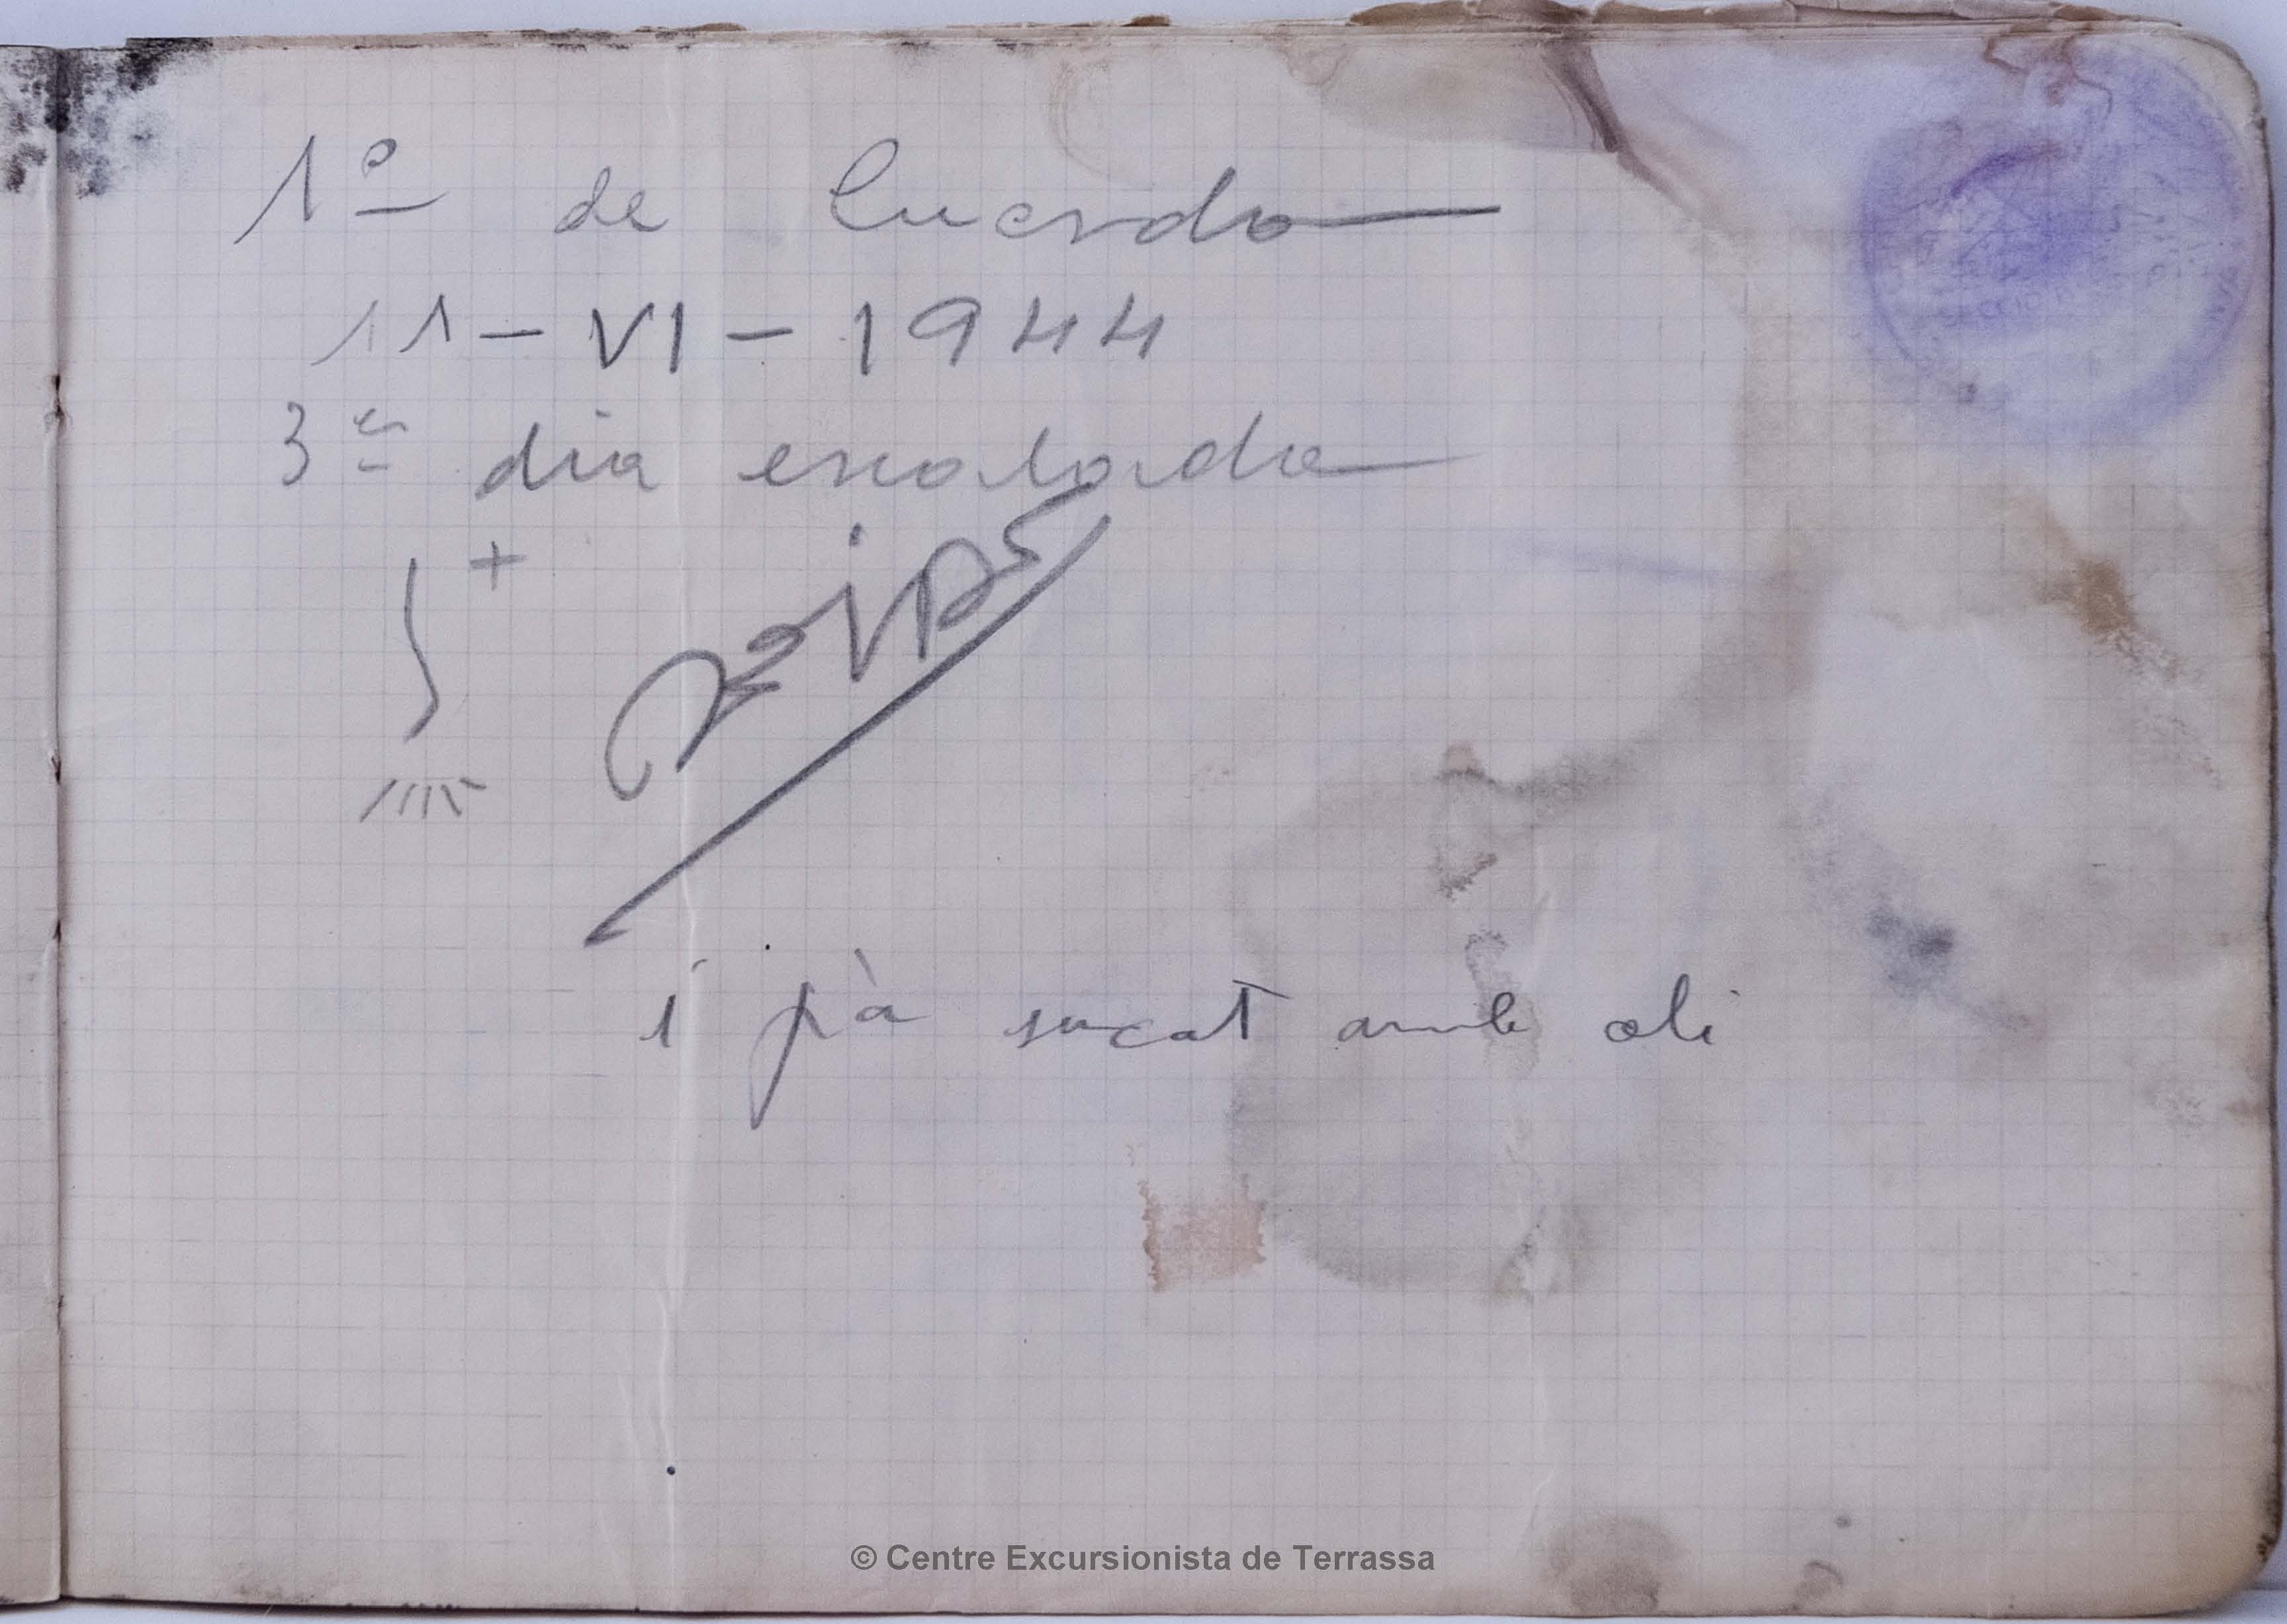 1º de cuerda
11-VI-1944
3er dia escalada
i pà sucat amb oli
© Centre Excursionista de Terrassa